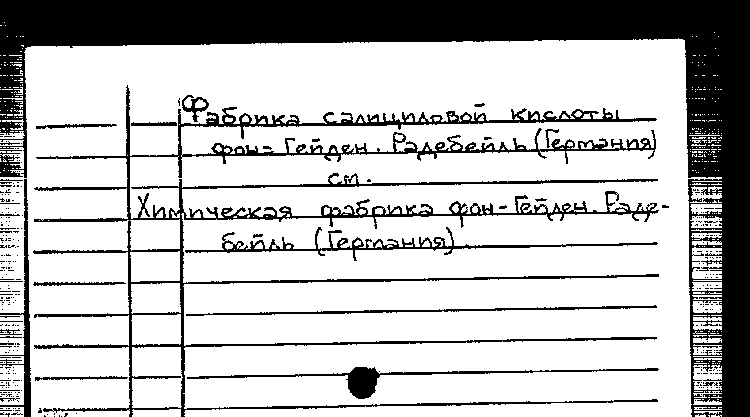 Фабрика салициловой кислоты
фон=Гейден. Радебейль (Германия)
см.
Химическая фабрика фон-Гейден. Раде-
бейль (Германия).